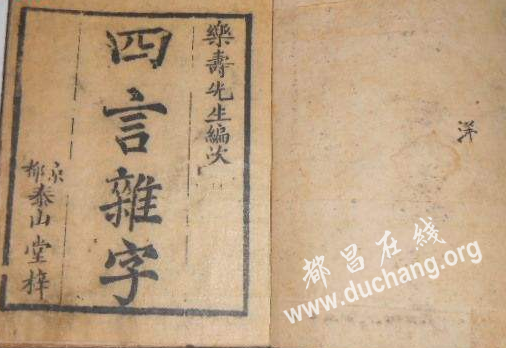 樂壽先生編次
四言雜字
泰山堂梓
都昌在线
www.duchang.org